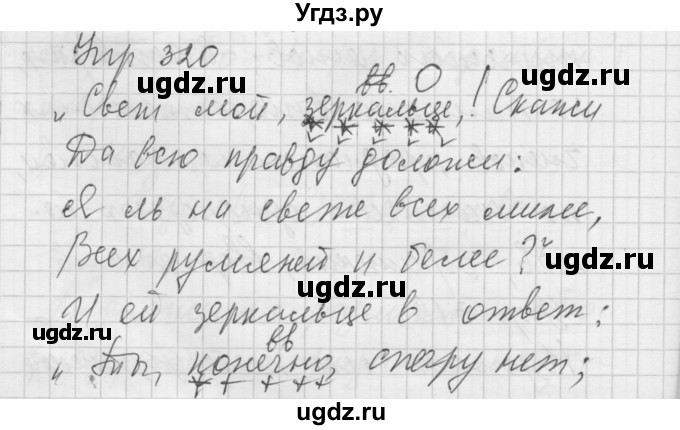 Угдз.ру
Упр 320
вв. О
„Свет мой, зеркальце,! Скажи
Да всю правду доложи:
Я ль на свете всех милее,
Всех румяней и белее?"
И ей зеркальце в ответ:
вв
„Ты, конечно, спору нет;
ugdz.ru ugdz.ru ugdz.ru
ugdz.ru ugdz.ru
ugdz.ru ugdz.ru
ugdz.ru ugdz.ru
ugdz.ru